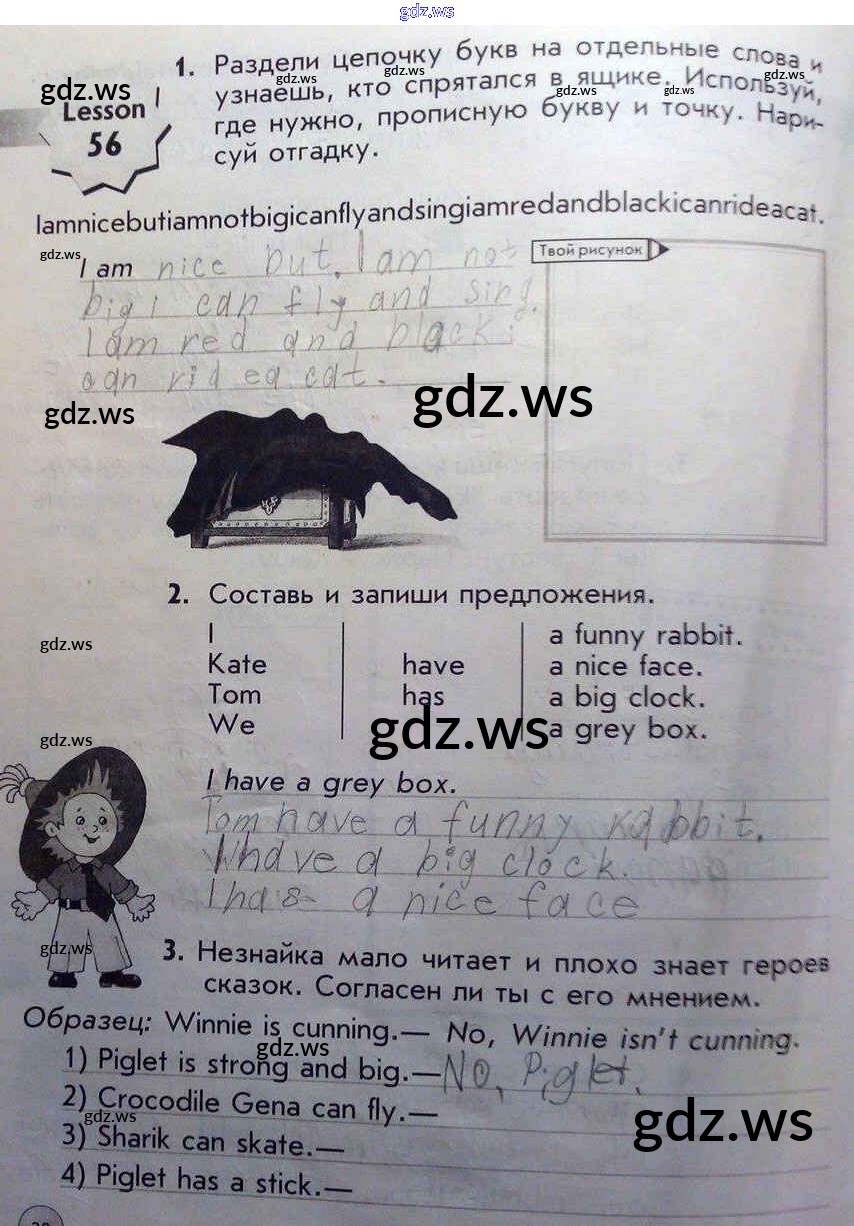 gdz.ws
1. Раздели цепочку букв на отдельные слова и
узнаешь, кто спрятался в ящике. Используй,
где нужно, прописную букву и точку. Нари-
суй отгадку.
gdz.ws
gdz.ws
gdz.ws
gdz.ws
gdz.ws
gdz.ws
Lesson
56
Iamnicebutiamnotbigicanflyandsingiamredandblackicanrideacat.
gdz.ws
I am nice but. I am not
big i can fly and sing.
I am red and black i
can rid ea cat.
Твой рисунок
gdz.ws
gdz.ws
2. Составь и запиши предложения.
I
Kate
Tom
We
have
has
a funny rabbit.
a nice face.
a big clock.
a grey box.
gdz.ws
gdz.ws
gdz.ws
I have a grey box.
Tom have a funny rabbit.
Whave a big clock.
I has a nice face
gdz.ws
3. Незнайка мало читает и плохо знает героев
сказок. Согласен ли ты с его мнением.
Образец: Winnie is cunning.— No, Winnie isn't cunning.
gdz.ws
1) Piglet is strong and big.— NO, Piglet.
2) Crocodile Gena can fly.—
gdz.ws
gdz.ws
3) Sharik can skate.—
4) Piglet has a stick.—